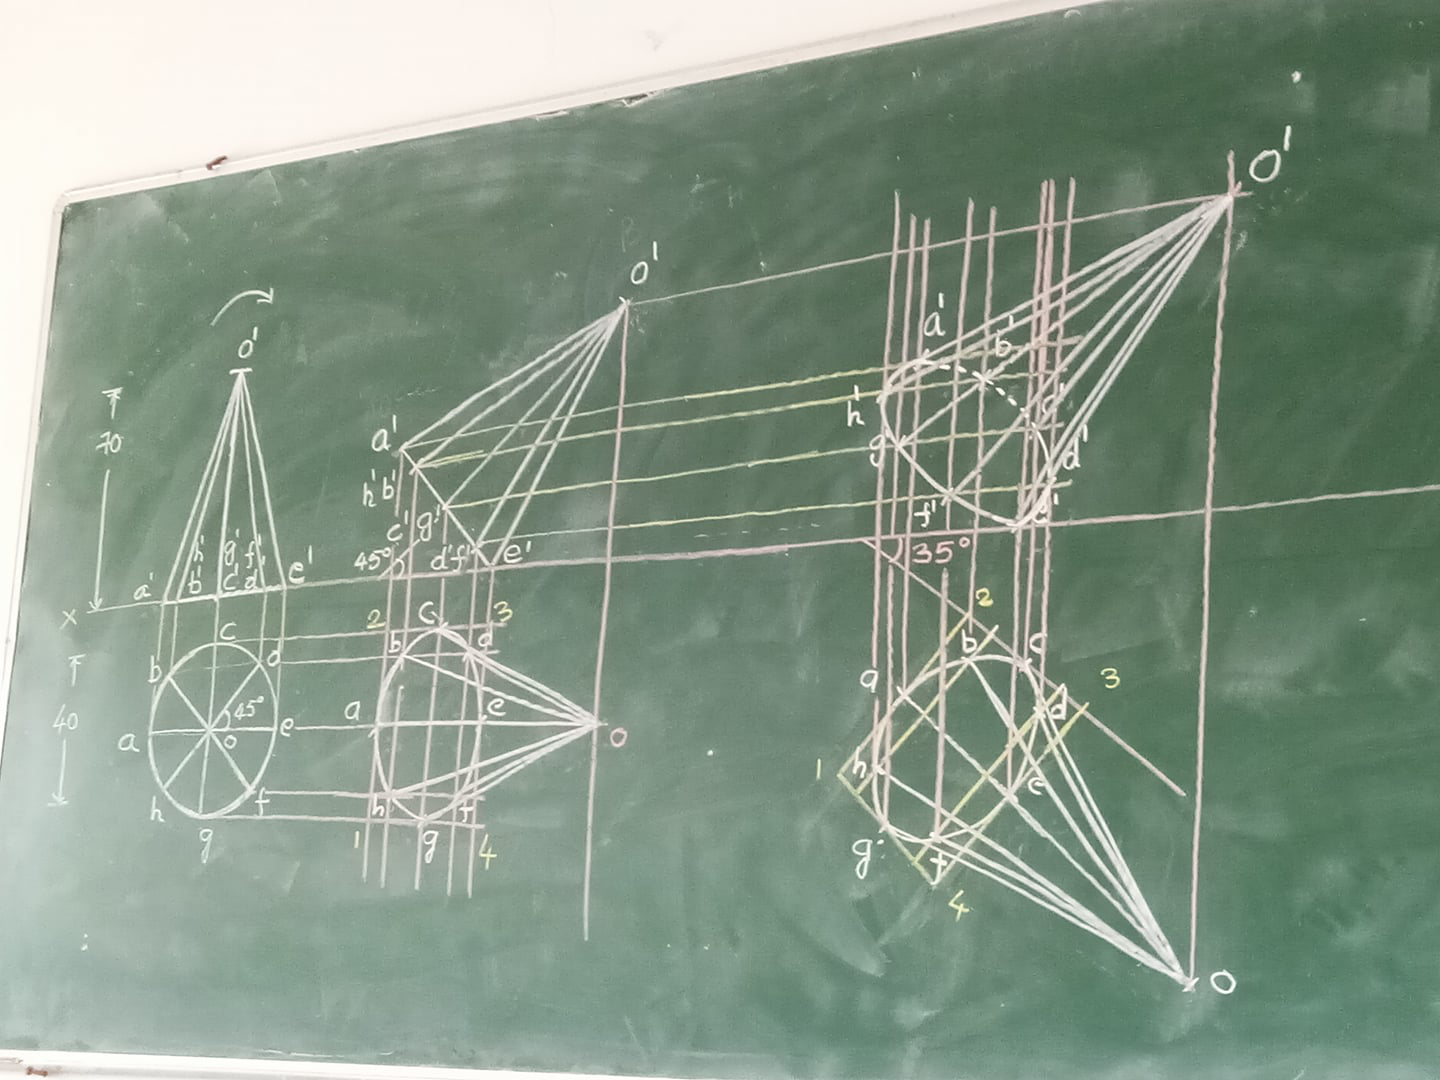 o'
70
a' h' b' g' c' f' d' e'
X
40
c
b d
45°
a o e
h f
g
o'
a'
h' b'
c' g'
45° d' f' e'
2 c 3
b d
a e o
h f
1 g 4
o'
a' b'
h' c'
g' d'
f' e'
35°
2
b c
a d 3
1 h e
g f
4
o